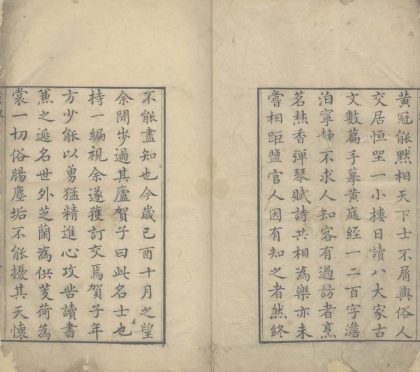 黄冠能黙相天下士不屑與俗人
交居恒坐一小樓日讀八大家古
文數篇手摹黄庭經一二百字澹
泊寧静不求人知客有過訪者烹
茗爇香彈琴賦詩共相為樂亦未
嘗相距鹽官人因有知之者然終
不能盡知也今歲己酉十月之望
余閒步過其廬賀子曰此名士也
持一編視余遂獲訂交焉賀子年
方少能以勇猛精進心攻苦讀書
蕉之遯名世外芝蘭為供芰荷為
裳一切俗腸塵垢不能擾其天懷